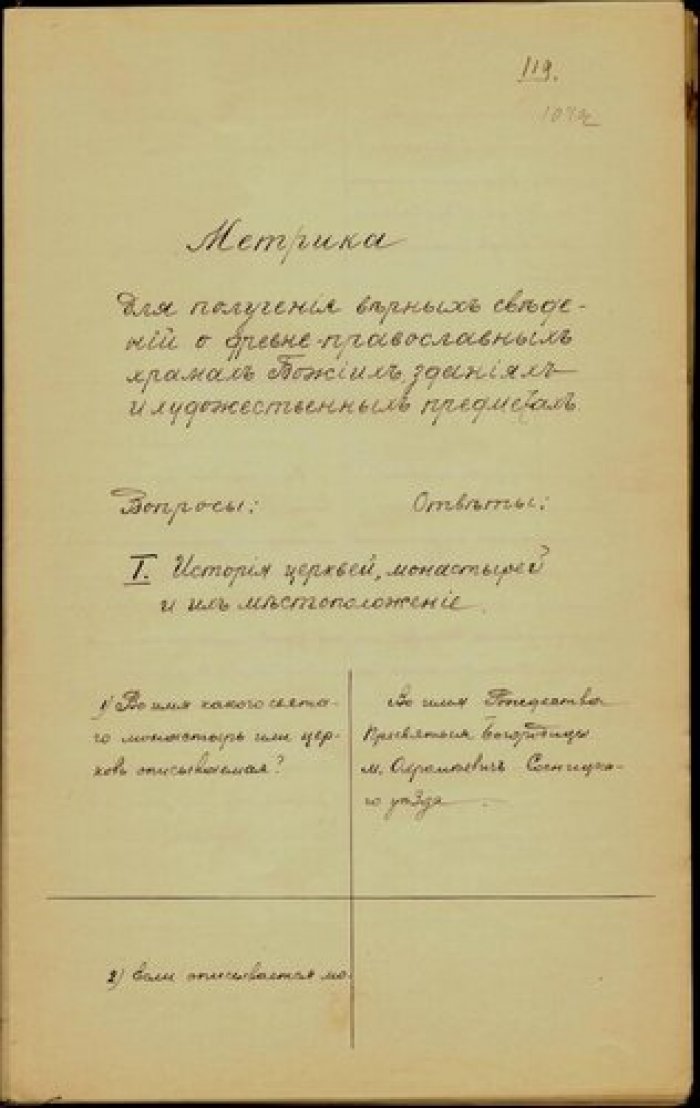 119.
Метрика
Для полученія вѣрныхъ свѣде-
ній о древне-православныхъ
храмахъ Божіихъ, зданіяхъ
и художественныхъ предметахъ
Вопросы: Отвѣты:
I. Исторія церквей, монастырей
и ихъ мѣстоположеніе.
1) Во имя какого свята-
го монастырь или цер-
ковь описываемая?
Во имя Рождества
Пресвятыя Богородицы
м. Сосницка-
го уѣзда
2) Если описывается мо-